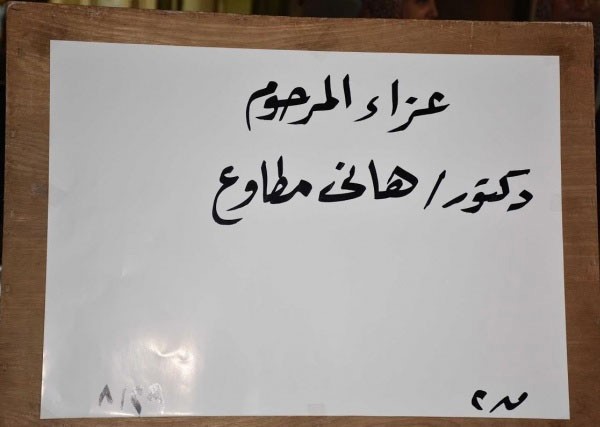 عزاء المرحوم
دكتور/ هانى مطاوع